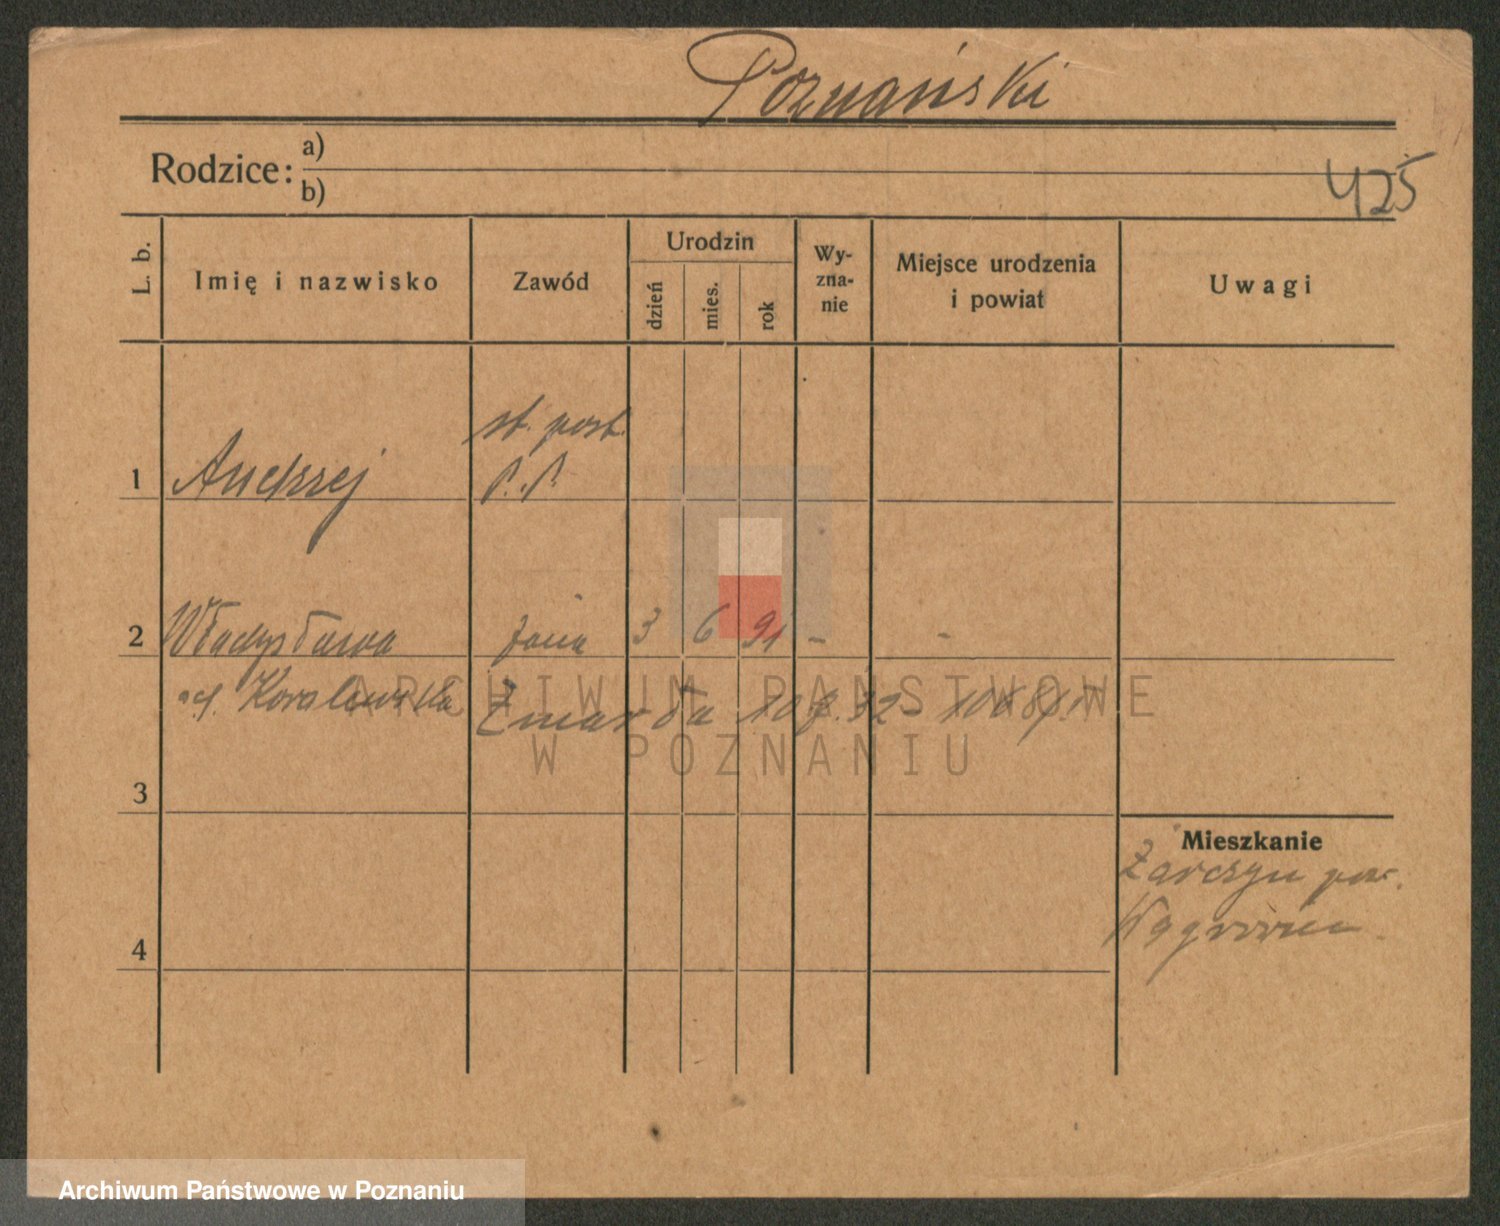 Poznański
Rodzice: a)
b)
425
L. b. Imię i nazwisko Zawód Urodzin dzień mies. rok Wy-zna-nie Miejsce urodzenia i powiat Uwagi
st. post.
1 Andrzej P.P.
2 Władysława żona 3 6 91 - -
Koralewska Zmarła 10 32 -
3
Mieszkanie
Żarczyn pow.
4 Wągrowiec
ARCHIWUM PAŃSTWOWE
W POZNANIU
Archiwum Państwowe w Poznaniu